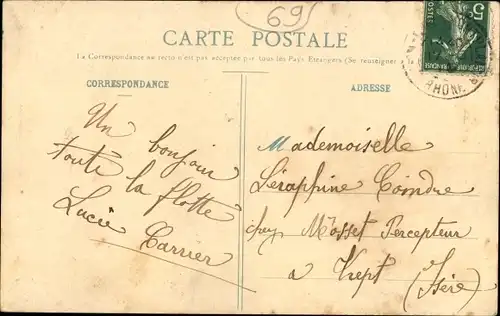 69
CARTE POSTALE
La Correspondance au recto n'est pas acceptée par tous les Pays Étrangers (Se renseigner
CORRESPONDANCE
ADRESSE
5c
POSTES
RHONE
Un bonjour
toute la flotte
Lucie Carrier
Mademoiselle
Séraphine Coindre
chez Mosset Percepteur
à Trept (Isère)